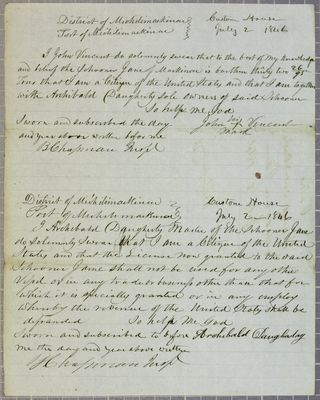 District of Michilimackinac } Custom House
Port of Michilimackinac } July 2 1846
I John Vincent do solemnly swear that to the best of my knowledge
and belief the Schooner Jane of Mackinac is burthen thirty two 26/95
Tons that I am a Citizen of the United States and that I am together
with Archibald Daugherty Sole owners of said Schooner
So help me God
Sworn and subscribed the day John his x Vincent
and year above written before me mark
B Chapman Insp
District of Michilimackinac } Custom House
Port of Michilimackinac } July 2 1846
I Archibald Daugherty Master of the Schooner Jane
do Solemnly Swear that I am a Citizen of the United
States and that the License now granted to the said
Schooner Jane Shall not be used for any other
Vessel or in any trade or business other than that for
which it is specially granted or in any employ
whereby the revenue of the United States shall be
defrauded So help Me God
Sworn and subscribed to before Archibald Daugherty
me the day and year above written
B Chapman Insp